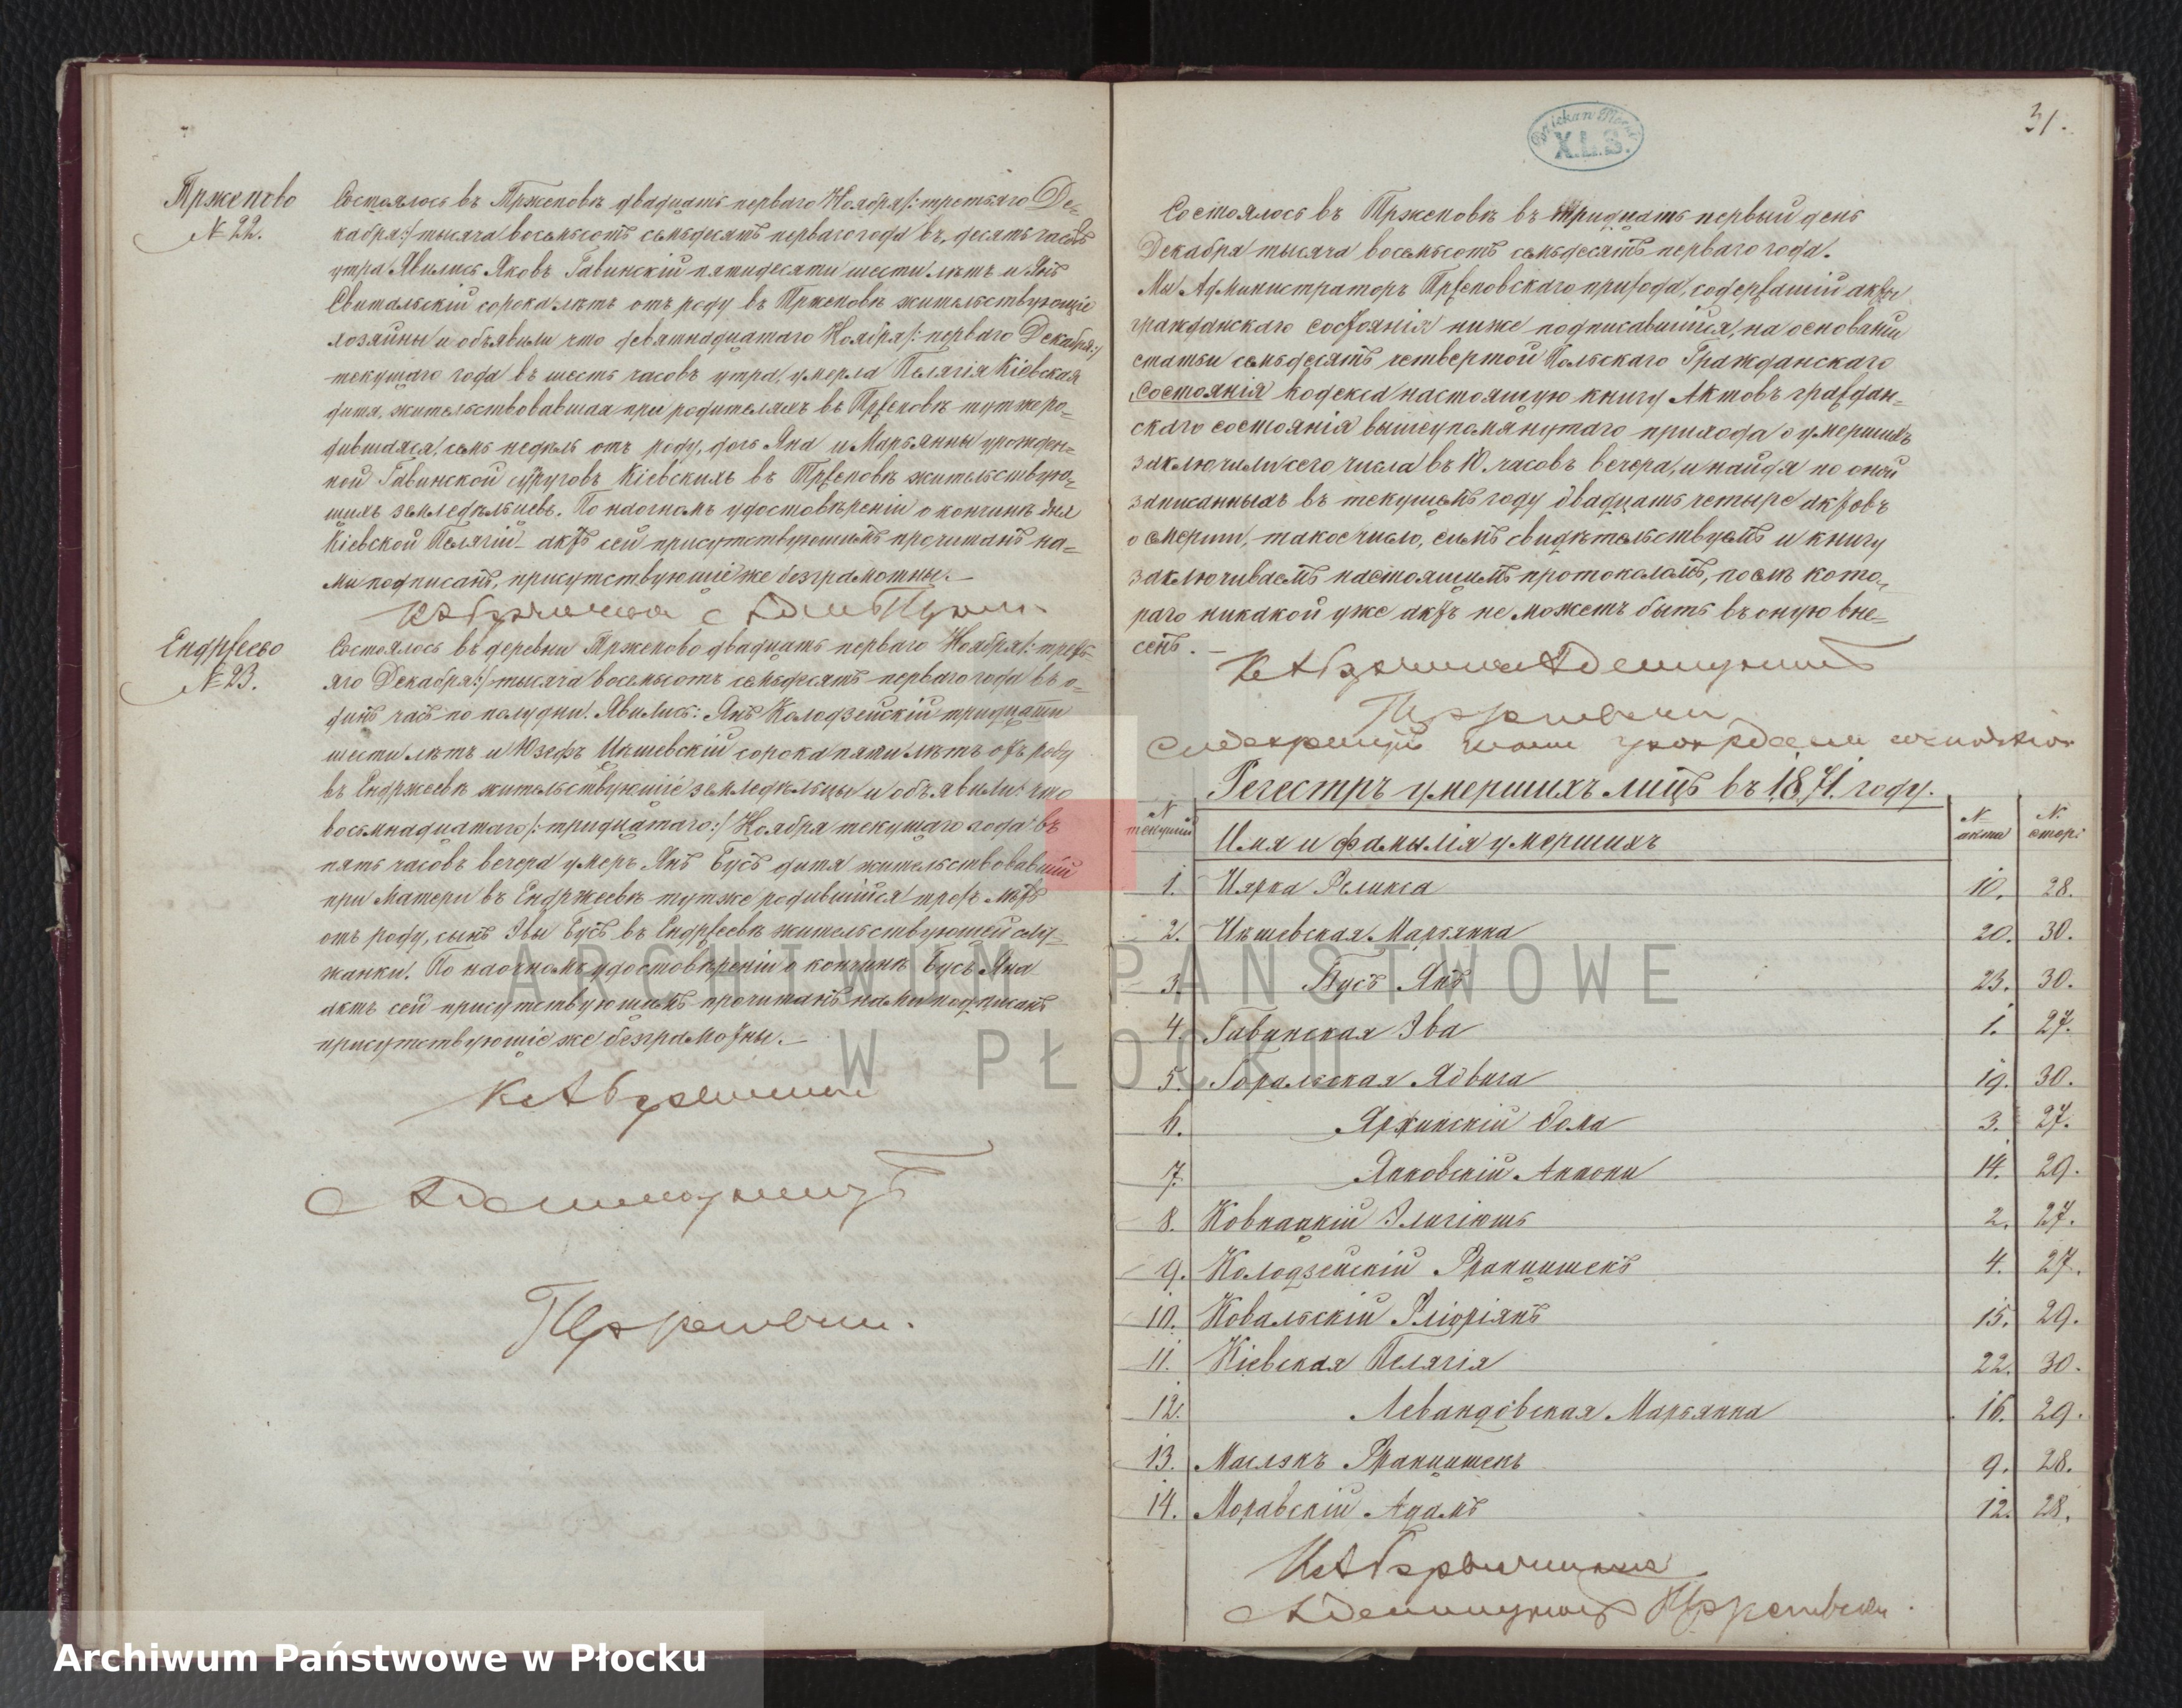 Тржепово
№ 22.
Состоялось въ Тржеповѣ двадцать перваго Ноября /: третьяго Де-
кабря :/ тысяча восемьсотъ семьдесятъ перваго года въ, десять часовъ
утра. Явились Яковъ Гавинскій пятидесяти шести лѣтъ и Янъ
Свитальскій сорока лѣтъ отъ роду въ Тржеповѣ жительствующіе
хозяины и объявили что девятнадцатаго Ноября /: перваго Декабря :/
текущаго года въ шесть часовъ утра, умерла Пелягія Кіевская
дитя, жительствовавшая при родителяхъ въ Тржеповѣ тутже ро-
дившаяся, семь недѣль отъ роду, дочь Яна и Марьянны урожден-
ной Гавинской супруговъ Кіевскихъ въ Тржеповѣ жительствую-
щихъ земледѣльцевъ. По наочномъ удостовѣреніи о кончинѣ
Кіевской Пелягіи актъ сей присутствующимъ прочитанъ на-
ми подписанъ, присутствующіе же безграмотны. —
Ендржеево
№ 23.
Состоялось въ деревни Тржепово двадцать перваго Ноября /: треть-
яго Декабря :/ тысяча восемьсотъ семьдесятъ перваго года въ о-
динъ часъ по полудни. Явились: Янъ Колодзейскій тридцати
шести лѣтъ и Юзефъ Цѣшевскій сорока пяти лѣтъ отъ роду
въ Ендржеевѣ жительствующіе земледѣльцы и объявили: что
восьмнадцатаго /: тридцатаго :/ Ноября текущаго года въ
пять часовъ вечера умеръ Янъ Бусъ дитя жительствовавшій
при Матери въ Ендржеевѣ тутже родившійся трехъ лѣтъ
отъ роду, сынъ Эвы Бусъ въ Ендржеевѣ жительствующей слу-
жанки. По наочномъ удостовѣреніи о кончинѣ Бусъ Яна
актъ сей присутствующимъ прочитанъ нами подписанъ
присутствующіе же безграмотны. —
31.
Dziekan Płocki
X.L.S.
Состоялось въ Тржеповѣ въ тридцать первый день
Декабря тысяча восемьсотъ семьдесятъ перваго года.
Мы Администраторъ Тржеповскаго прихода, содержащій акты
гражданскаго состоянія ниже подписавшійся, на основаніи
статьи семьдесятъ четвертой Польскаго Гражданскаго
Состоянія кодекса настоящую книгу Актовъ граждан-
скаго состоянія вышеупомянутаго прихода о умершихъ
заключили сего числа въ 10. часовъ вечера, и найдя по оной
записанныхъ въ текущемъ году двадцать четыре актовъ
о смерти, такое число, симъ свидѣтельствуетъ и книгу
заключиваетъ настоящимъ протоколомъ, послѣ кото-
раго никакой уже актъ не можетъ быть въ оную вне-
сенъ. —
Регестръ умершихъ лицъ въ 1871. году.
№ текущій
Имя и фамылія умершихъ
№ акта
№ стор:
1. Цярка Феликса 10. 28.
2. Цѣшевская Марьянна 20. 30.
3. Бусъ Янъ 23. 30.
4. Гавинская Эва 1. 27.
5. Горальская Ядвига 19. 30.
6. Яржинскій 3. 27.
7. Янковскій Антони 14. 29.
8. Ковнацкій Элигіюшъ 2. 27.
9. Колодзейскій Францишекъ 4. 27.
10. Ковальскій Флоріянъ 15. 29.
11. Кіевская Пелягія 22. 30.
12. Левандовская Марьянна 16. 29.
13. Маслякъ Францишекъ 9. 28.
14. Моравскій Адамъ 12. 28.
ARCHIWUM PAŃSTWOWE
W PŁOCKU
Archiwum Państwowe w Płocku